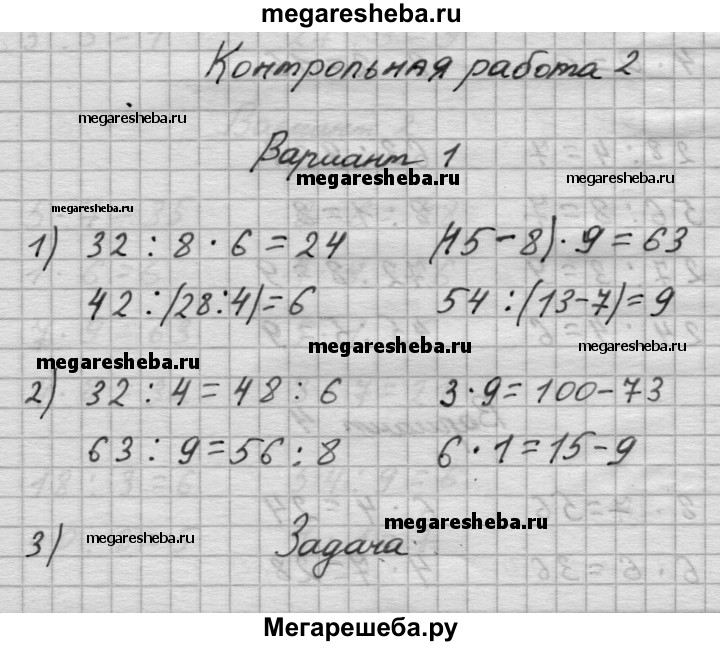 megaresheba.ru
Контрольная работа 2
megaresheba.ru
Вариант 1
megaresheba.ru megaresheba.ru
megaresheba.ru
1) 32 : 8 · 6 = 24 (15 - 8) · 9 = 63
42 : (28:4) = 6 54 : (13-7) = 9
megaresheba.ru megaresheba.ru megaresheba.ru
2) 32 : 4 = 48 : 6 3 · 9 = 100 - 73
63 : 9 = 56 : 8 6 · 1 = 15 - 9
megaresheba.ru
3) megaresheba.ru Задача
Мегарешеба.ру